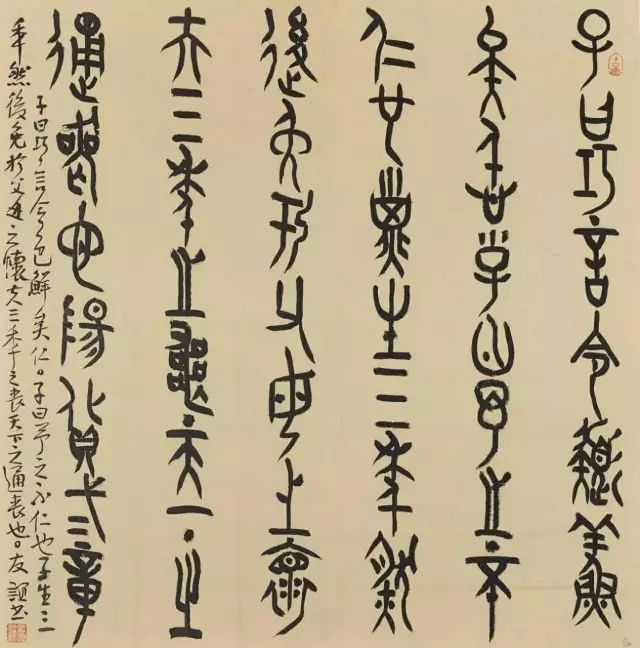 子曰巧言令色鮮
矣仁子曰予之不
仁也子生三年然
後免於父母之懷
夫三年之喪天下之
通喪也陽貨弍章
子曰巧言令色鮮矣仁。子曰予之不仁也子生三
年然後免於父母之懷夫三年之喪天下之通喪也。友誼書